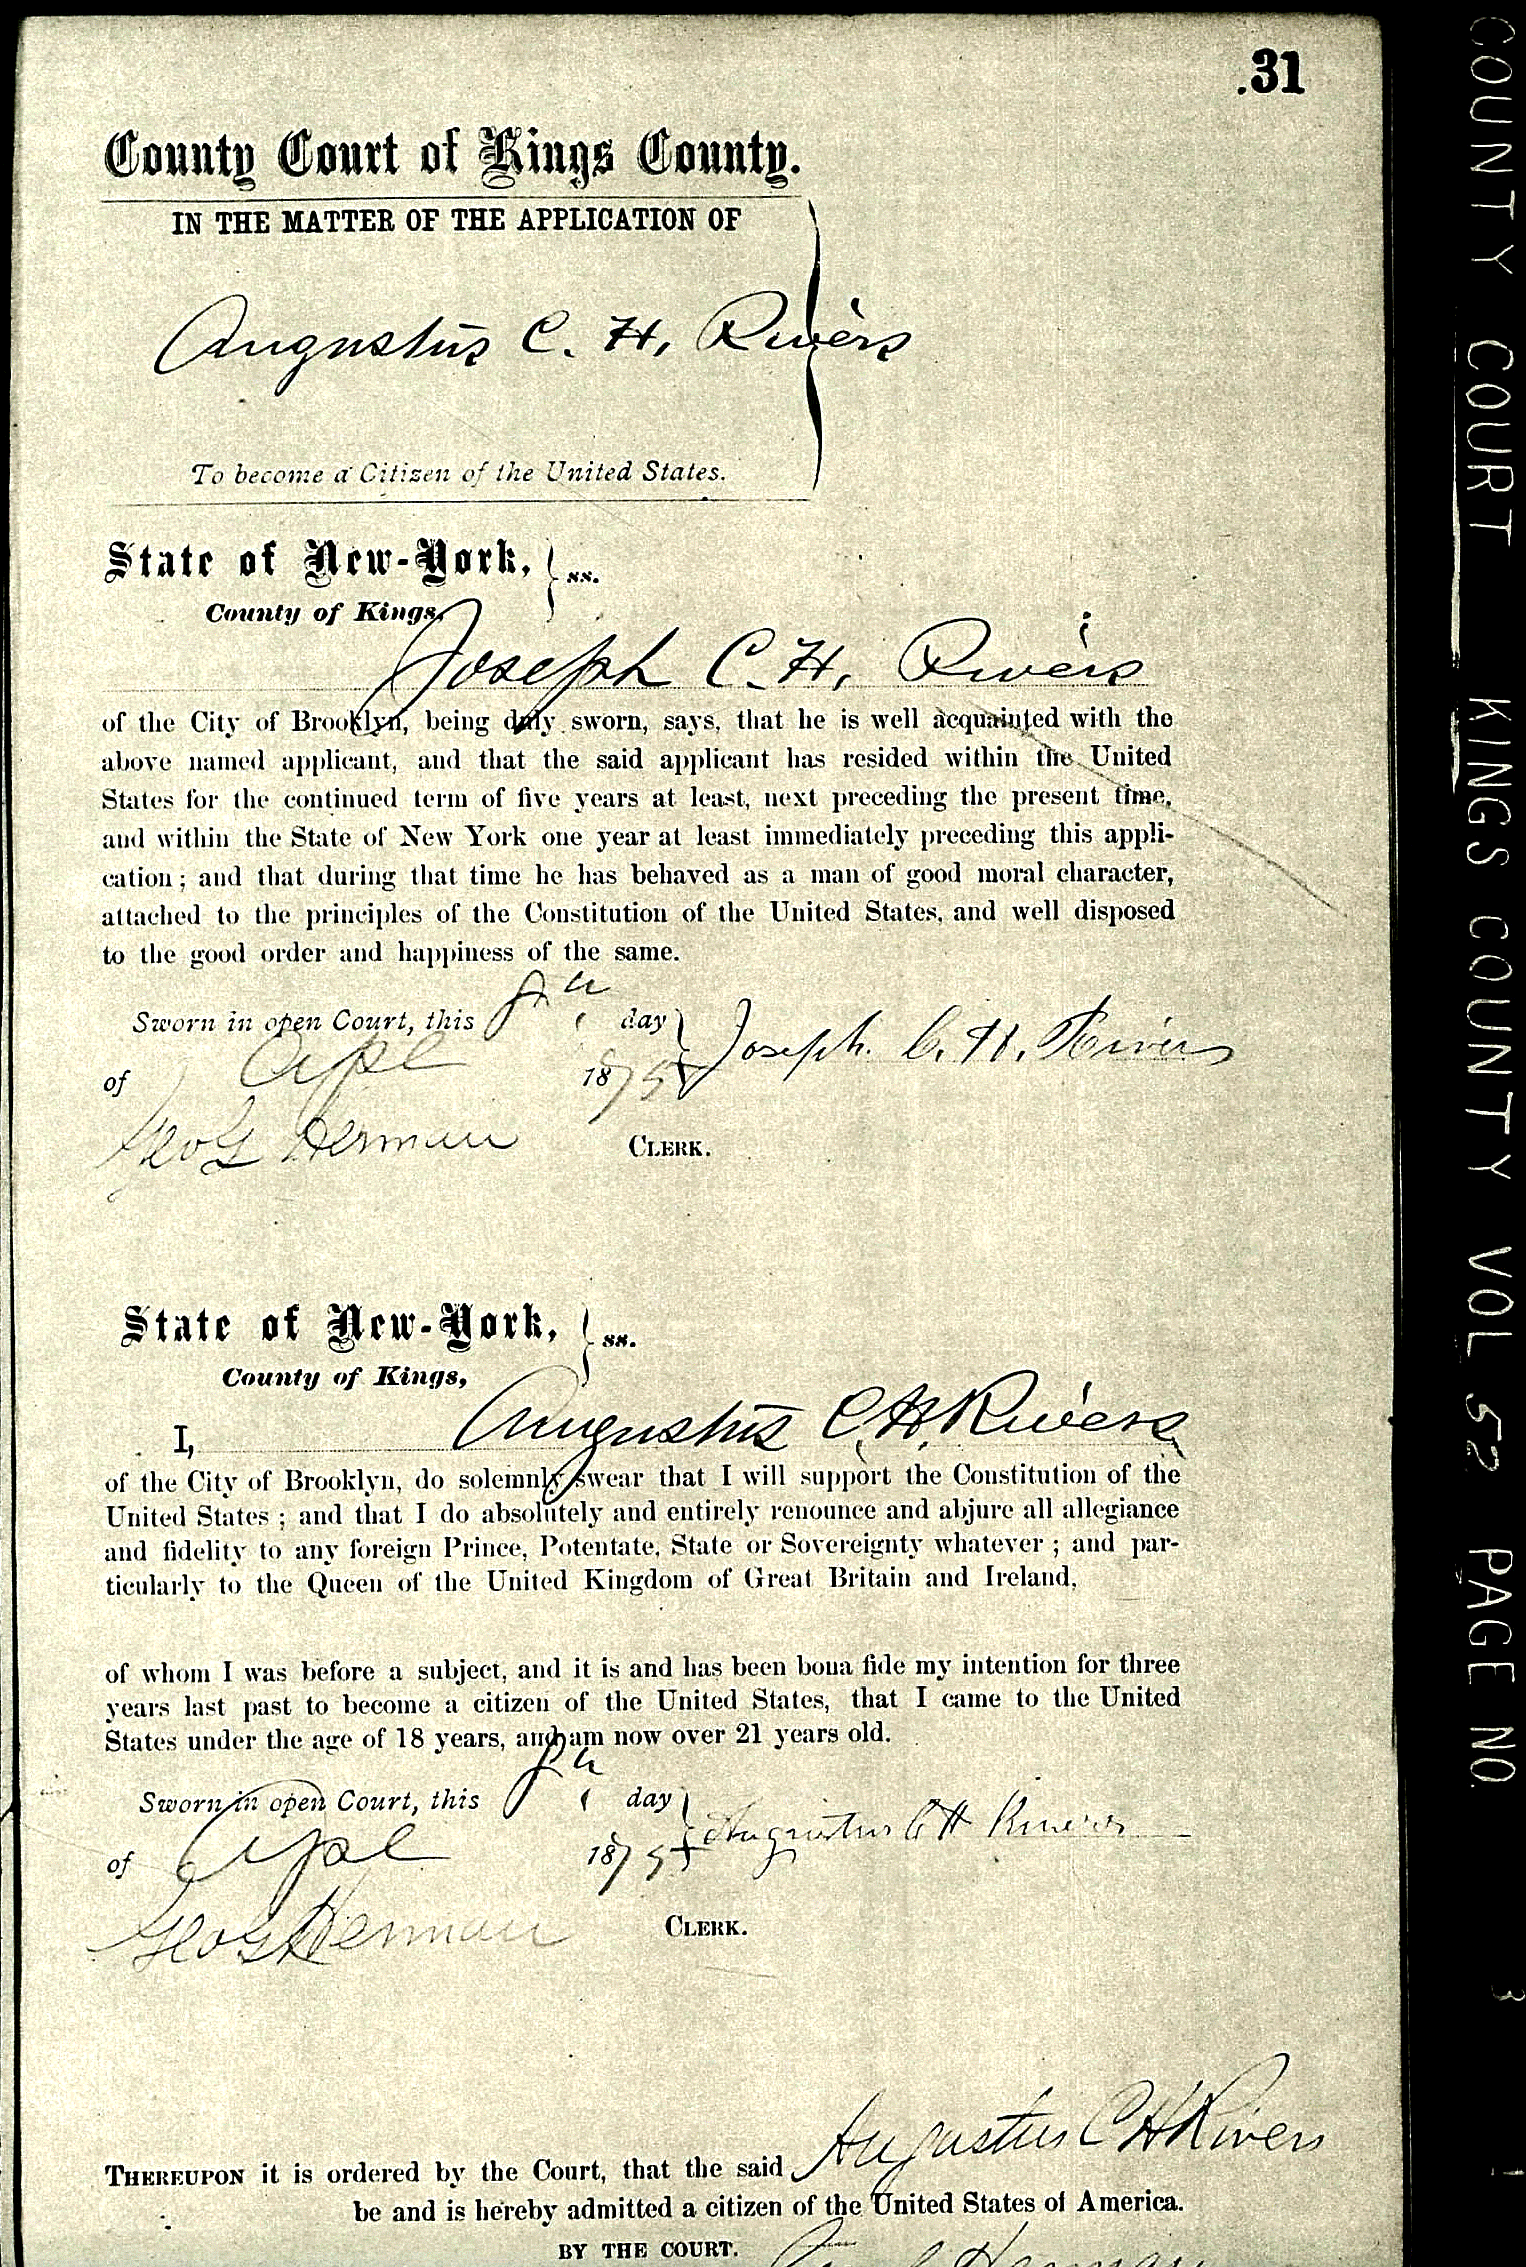 .31
County Court of Kings County.
IN THE MATTER OF THE APPLICATION OF
Augustus C. H. Rivers
To become a Citizen of the United States.
State of New-York, } ss.
County of Kings,
Joseph C. H. Rivers
of the City of Brooklyn, being duly sworn, says, that he is well acquainted with the
above named applicant, and that the said applicant has resided within the United
States for the continued term of five years at least, next preceding the present time,
and within the State of New York one year at least immediately preceding this appli-
cation; and that during that time he has behaved as a man of good moral character,
attached to the principles of the Constitution of the United States, and well disposed
to the good order and happiness of the same.
Sworn in open Court, this 8th day } Joseph. C. H. Rivers
of Apl 1875
Geo G Herman CLERK.
State of New-York, } ss.
County of Kings,
I, Augustus C. H. Rivers
of the City of Brooklyn, do solemnly swear that I will support the Constitution of the
United States; and that I do absolutely and entirely renounce and abjure all allegiance
and fidelity to any foreign Prince, Potentate, State or Sovereignty whatever; and par-
ticularly to the Queen of the United Kingdom of Great Britain and Ireland,
of whom I was before a subject, and it is and has been bona fide my intention for three
years last past to become a citizen of the United States, that I came to the United
States under the age of 18 years, and am now over 21 years old.
Sworn in open Court, this 8th day } Augustus C H Rivers
of Apl 1875
Geo G Herman CLERK.
THEREUPON it is ordered by the Court, that the said Augustus C H Rivers
be and is hereby admitted a citizen of the United States of America.
BY THE COURT.
COUNTY COURT KINGS COUNTY VOL 52 PAGE NO. 31